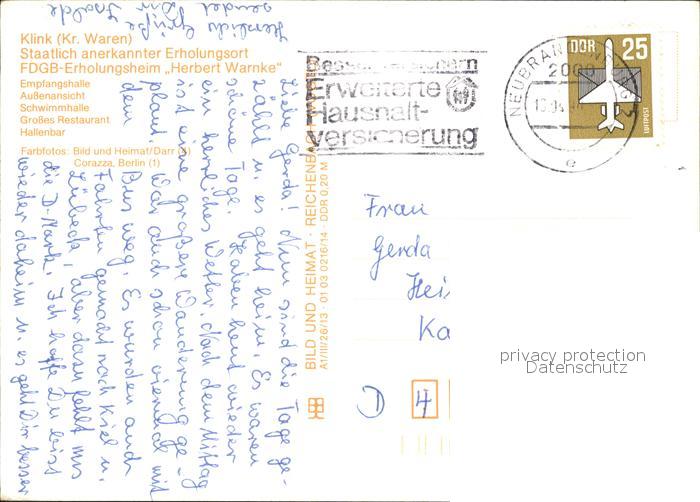 Klink (Kr. Waren)
Staatlich anerkannter Erholungsort
FDGB-Erholungsheim „Herbert Warnke“
Empfangshalle
Außenansicht
Schwimmhalle
Großes Restaurant
Hallenbar
Farbfotos: Bild und Heimat/Darr (4)
Corazza, Berlin (1)
Liebe Gerda! Nun sind die Tage ge-
zählt u. es geht heim. Es waren
schöne Tage. Haben heut wieder
ein herrliches Wetter. Nach dem Mittag
ist eine größere Wanderung ge-
plant. War auch schon viermal mit
dem Bus weg. Es wurden auch
Fahrten gemacht nach Kiel u.
Lübeck, aber dazu fehlt uns
die D-Mark. Ich hoffe Du bist
wieder daheim u. es geht Dir besser
Herzliche Grüße
sendet Dir
BILD UND HEIMAT · REICHENBACH
A1/III/26/13 - 01 03 0216/14 · DDR 0,20 M
Besser versichern
Erweiterte
Haushalt-
versicherung
NEUBRANDENBURG 3
2000
e
DDR 25
LUFTPOST
Frau
Gerda
Hei
Ka
D 4
privacy protection
Datenschutz